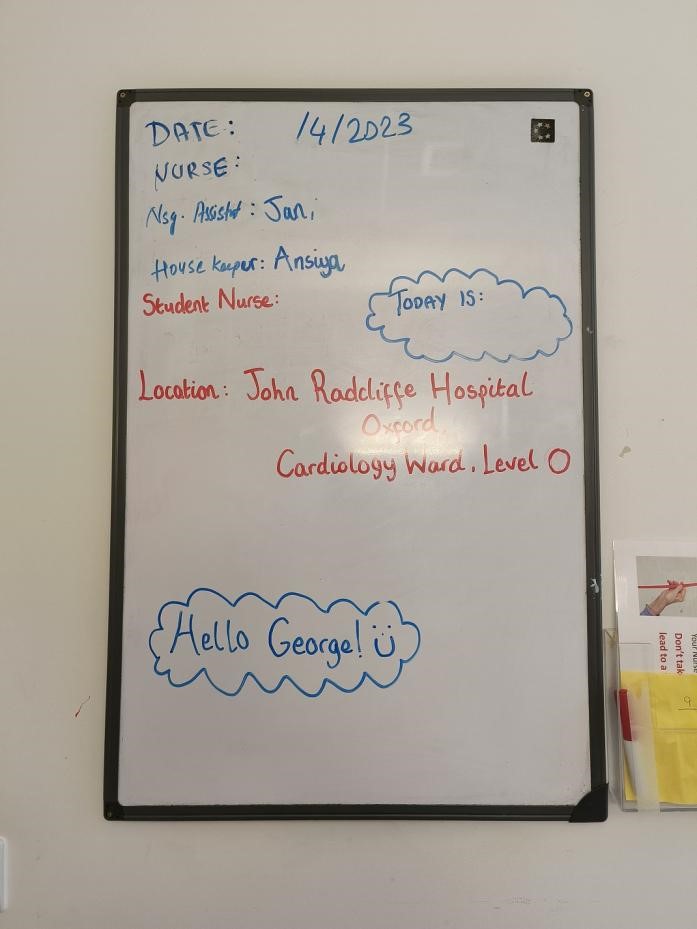 DATE: /4/2023
NURSE:
Nsg. Assist : Jani
House keeper: Ansiya
Student Nurse:
TODAY IS:
Location: John Radcliffe Hospital
Oxford.
Cardiology Ward. Level 0
Hello George! Ü
Your Nurse
Don't tak
lead to a
9